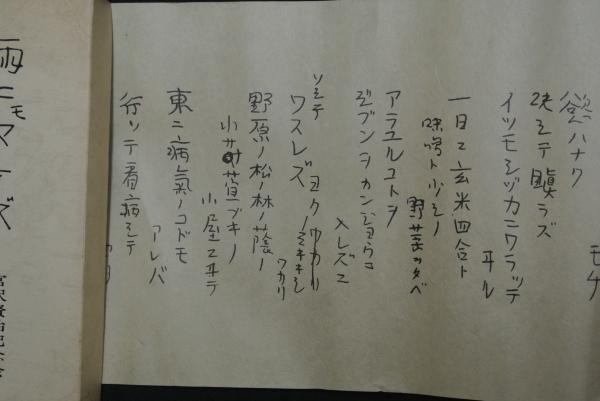 モチ
慾ハナク
決シテ瞋ラズ
イツモシヅカニワラッテ
ヰル
一日ニ玄米四合ト
味噌ト少シノ
野菜ヲタベ
アラユルコトヲ
ジブンヲカンジョウニ
入レズニ
ヨクミキキシ
ワカリ
ソシテ
ワスレズ
野原ノ松ノ林ノ蔭ノ
小サナ萓ブキノ
小屋ニヰテ
東ニ病氣ノコドモ
アレバ
行ッテ看病シテ
雨ニモマケズ
宮沢賢治記念会